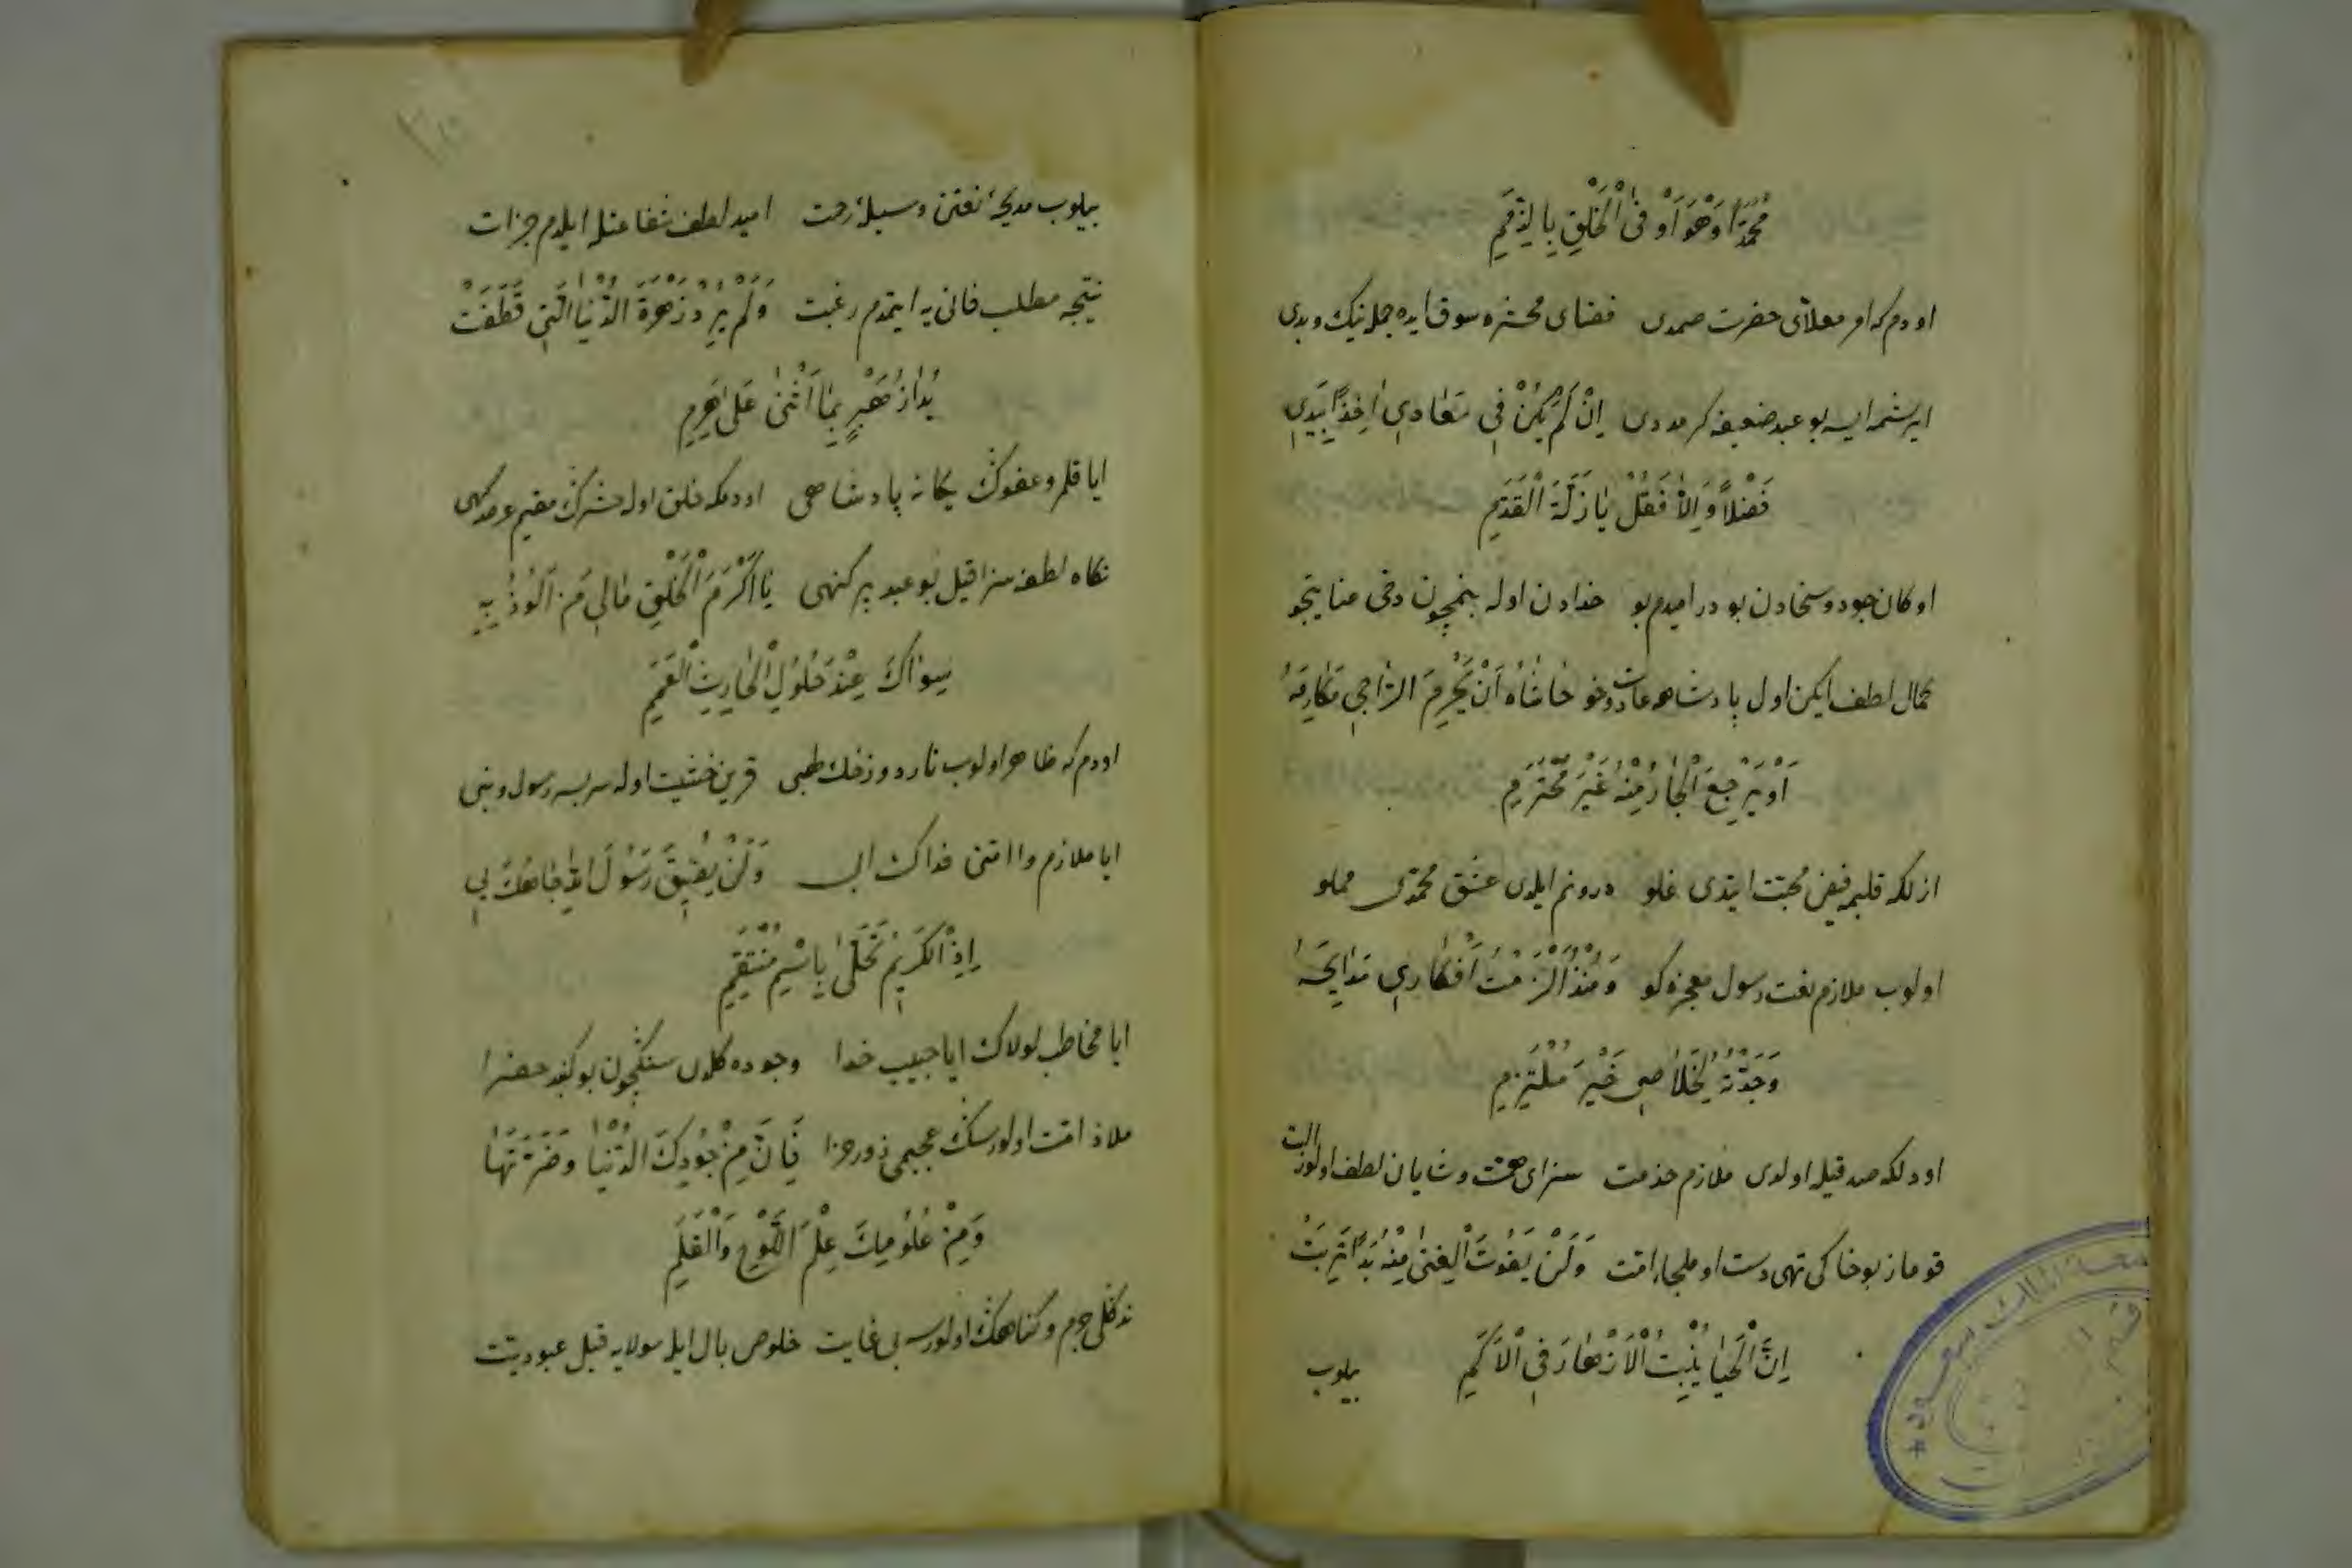 مُحَمَّدًا وَهُوَ اَوْفَى الْخَلْقِ بِالذِّمَمِ
او دم که امر معلای حضرت صمدی فضای محشره سوق ایده جمله نیک و بدی
ایرشمه ایسه بو عبد ضعیفه کر مددی اِنْ لَمْ يَكُنْ فِي مَعَادِي اٰخِذًا بِيَدِي
فَضْلًا وَاِلَّا فَقُلْ يَا زَلَّةَ الْقَدَمِ
او کان جود و سخادن بودر امیدم بو خدادن اوله بنمچون دخی
کمال لطف ایکن اول پادشاهه عادت و خو حَاشَاهُ اَنْ يُحْرِمَ الرَّاجِي مَكَارِمَهُ
اَوْ يَرْجِعَ الْجَارُ مِنْهُ غَيْرَ مُحْتَرَمِ
ازلکه قلبمه فیض محبت ایتدی غلو درونم ایلدی عشق محمدی مملو
اولوب ملازم نعت رسول معجزه کو وَمُنْذُ اَلْزَمْتُ اَفْكَارِي مَدَايِحَهُ
وَجَدْتُهُ لِخَلَاصِي خَيْرَ مُلْتَزِمِ
او دلکه صدقیله اولدی ملازم خدمت سزای همت و شایان لطف اولور البت
قوماز بو خاکی تهی دست او ملجاء امت وَلَنْ يَفُوتَ الْغِنٰى مِنْهُ يَدًا تَرِبَتْ
اِنَّ الْحَيَا يُنْبِتُ الْاَزْهَارَ فِي الْاَكَمِ
بیلوب
بیلوب مدیحۀ نعتن وسیلۀ رحمت امید لطف شفاعتله ایلدم جرات
نتیجه مطلب فانی یه ایتمدم رغبت وَلَمْ اُرِدْ زَهْرَةَ الدُّنْيَا الَّتِي قَطَفَتْ
يَدَا زُهَيْرٍ بِمَا اَثْنٰى عَلٰى هَرِمِ
ایا قلمرو عفوک یکانه پادشاهی اودمکه خلق اوله حشرک مقیم عرصه کهی
نکاه لطفه سزا قیل بو عبد پر کنهی يَا اَكْرَمَ الْخَلْقِ مَالِي مَنْ اَلُوذُ بِهِ
سِوَاكَ عِنْدَ حُلُولِ الْحَادِثِ الْعَمِمِ
اودم که ظاهر اولوب نار دوزخک لهبی قرین خشیت اوله سربسر رسول و نبی
ایا ملازم وا امتی فداک ابی وَلَنْ يَضِيقَ رَسُولَ اللّٰهِ جَاهُكَ بِي
اِذِ الْكَرِيمُ تَحَلّٰى بِاسْمِ مُنْتَقِمِ
ایا مخاطب لولاک ایا حبیب خدا وجوده کلدی سنکچون بو کنبد خضرا
ملاذ امت اولورسک عجبمی روز جزا فَاِنَّ مِنْ جُودِكَ الدُّنْيَا وَضَرَّتَهَا
وَمِنْ عُلُومِكَ عِلْمَ اللَّوْحِ وَالْقَلَمِ
نه کلی جرم و کناهک اولورسه بی غایت خلوص بال ایله مولایه قیل عبودیت